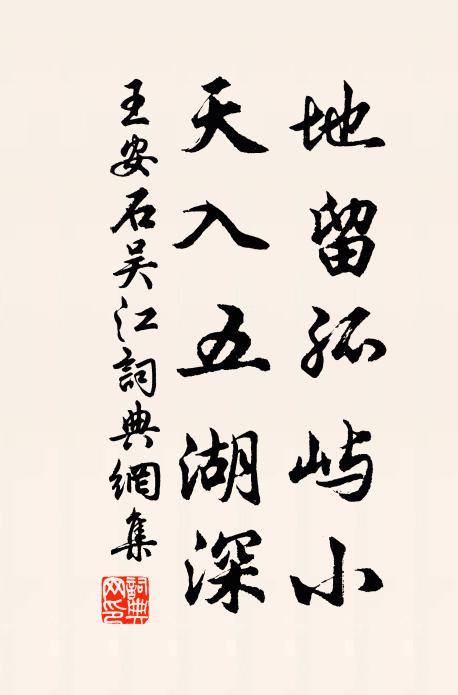 地留孤屿小
天入五湖深
王安石吴江詞典網集
詞典网印